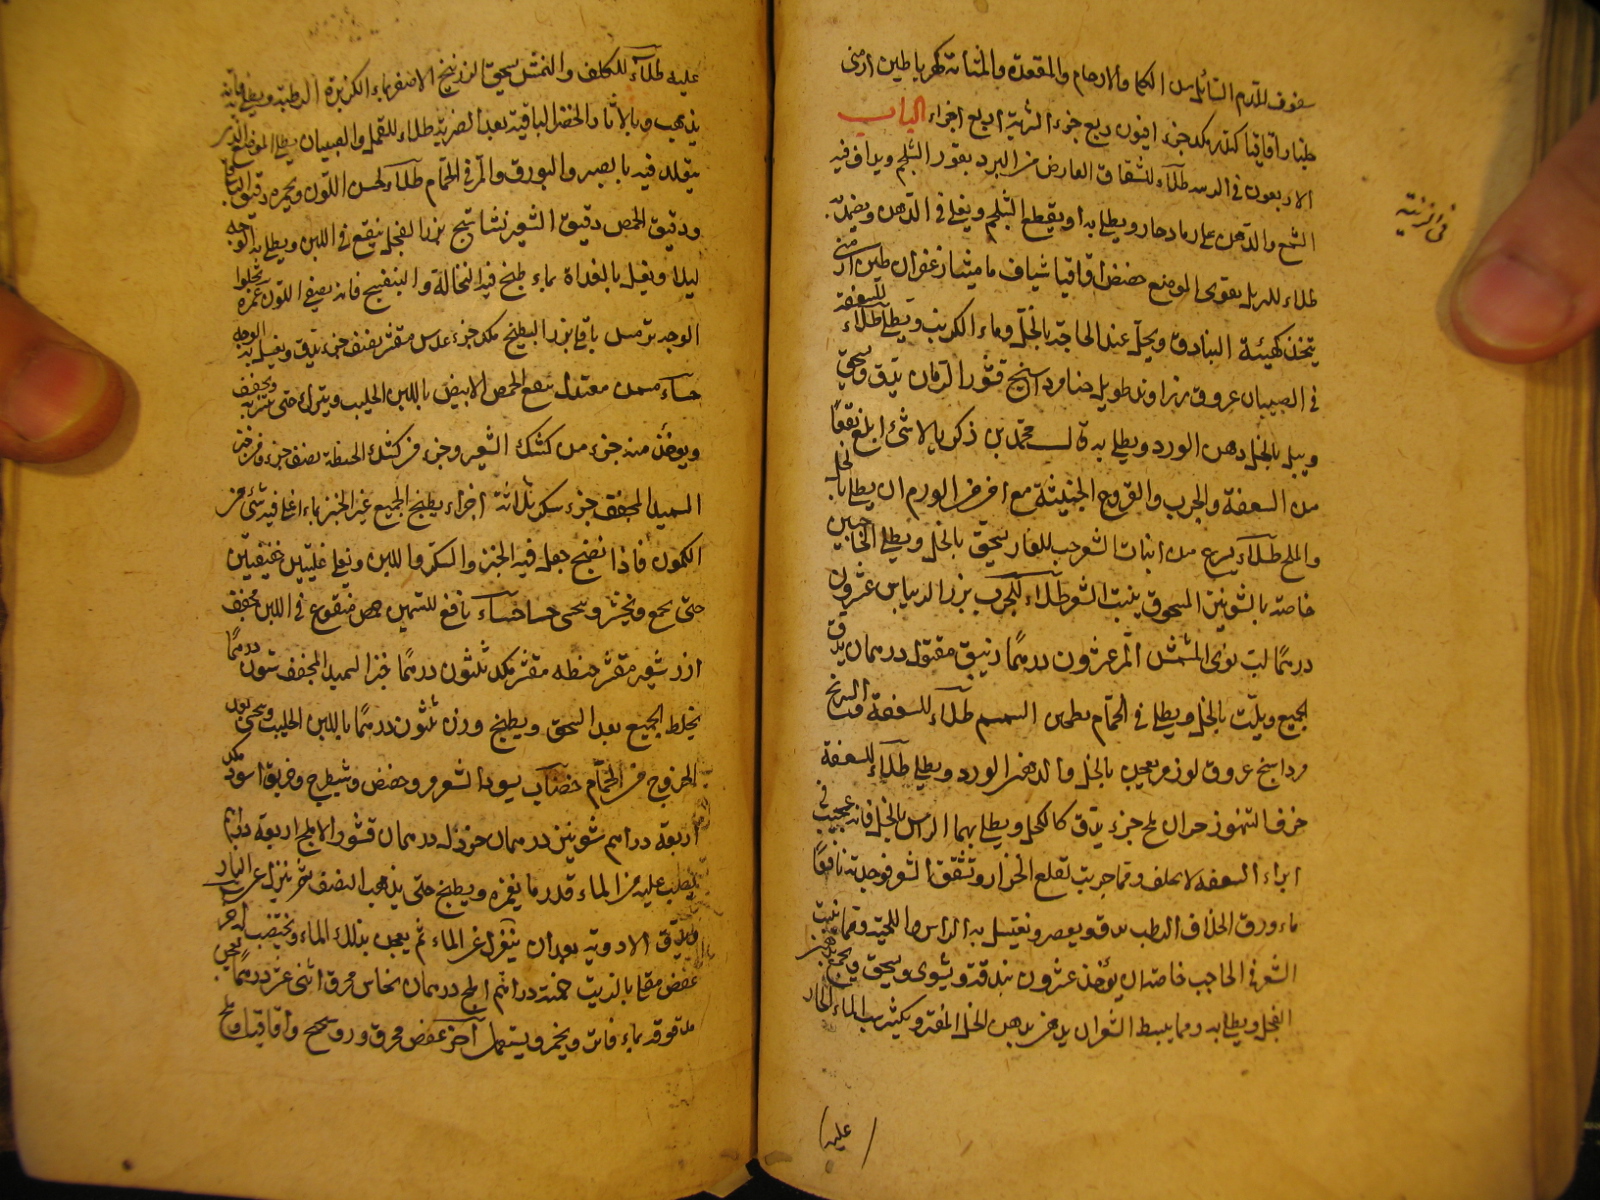 سفوف للدم السائل من الكلى والارحام والمقعدة والمثانة كهربا طين ارمنى
جلنار اقاقيا كثيرا مكد جزء افيون ربع جزء الشربة اربع اجزاء الباب
الاربعون فى الزينة طلاء للشقاق العارض من البرد يقور الشلجم ويداف فيه
فى الزينة
الشمع والدهن على رماد حار ويطلى به او يقطع الشلجم ويغلى فى الدهن ويضمد به
طلاء للدبل يقوى الموضع حضض اقاقيا شياف ماميثا زعفران طين ارمنى
يتخذ كهيئة البنادق ويحل عند الحاجة بالخل وماء الكرنب ويطلى طلاء للسعفة
فى الصبيان عروق زراوند طويل حنا مرداسنج قشور الرمان يدق ويسحق
ويبل بالخل ودهن الورد ويطلى به قال محمد بن زكريا لا شئ ابلغ نفعا
من السعفة والجرب والقروح الخبيثة مع اخر من الورم ان يطلى بالخل
والملح طلاء يسرع من انبات الشعر حب الغار يسحق بالخل ويطلى الحاجبين
خاصة بالشونيز المحوق ينبت الشعر طلاء للجرب بزر الدباس عشرون
درهما لب نوى المشمش المر عشرون درهما زنبق مقتول درهمان يدق
الجميع ويلت بالخل ويطلى فى الحمام بطحين السمسم طلاء للسعفة
مرداسنج عروق لوز مر يعجن بالخل والدهن الورد ويطلى طلاء للسعفة
خزف التنور جزان ملح جزء يدق كالكحل ويطلى بهما الراس بالخل فانه عجيب فى
ابراء السعفة لا يخلف ومما جربت لقلع الحزاز وتشقق الشعر فوجدته نافعا
ماء ورق الخلاف الرطب يدق ويعصر ويغتسل به الراس واللحية ومما ينبت
الشعر فى الحاجب خاصة ان يؤخذ عشرون بندقة ويشوى ويسحق ويجمع بدهن
الفجل ويطلى به ومما يبسط الشعر ان يدهن بدهن الخل المفتر ويكثر صب الماء الحار
عليه
عليه طلاء للكلف والنمش يسحق الزرنيخ الاصفر بماء الكزبرة الرطبة ويطلى فانه
يذهب وبالاثار والخضر الباقية بعد الضربة طلاء للقمل والصيبان يطلى الموضع الذى
يتولد فيه بالصبر والبورق والمر فى الحمام طلاء لحسن اللون ويحمره دقيق الباقلا
ودقيق الحمص دقيق الشعير نشاستج بزر الفجل ينقع فى اللبن ويطلى به الوجه
ليلا ويغسل بالغداة بماء طبخ فيه النخالة والبنفسج فانه يصفى اللون غمرة يجلوا
الوجه ترمس باقلى بزر البطيخ مكد جزء عدس مقشر نصف جزء يدق ويغسل به الوجه
حساء مسمن معتدل ينقع الحمص الابيض باللبن الحليب ويترك حتى يشربه ويجفف
ويوخذ منه جزء من كشك الشعير وجزء من كشك الحنطة نصف جزء ومن خبز
السميد المجفف جزء سكر ثلاثة اجزاء يطبخ الجميع غير الخبز بماء اغلى فيه شئ من
الكمون فاذا نضج جعل فيه الخبز والسكر واللبن ويغلى غليتين خفيفتين
حتى يجمع ويخثر ويتحسى حسا حساء نافع للتسمين حمص منقوع فى اللبن مجفف
ارز شعير مقشر حنطه مقشر مكد ثلثون درهما خبز السميد المجفف ستون درهما
يخلط الجميع بعد السحق ويطبخ وزن ثلثون درهما باللبن الحليب ويتحسى بعد
الخروج من الحمام خضاب يسود الشعر مر وحضض وشيطرج وخربق اسود مكد
اربعة دراهم شونيز درهمان خردل درهمان قشور الاملج اربعة دراهم
يصب عليه من الماء قدر ما يغمره ويطبخ حتى يذهب النصف ثم ينزل عن النار
ويدق الادوية بعد ان ينزل عن الماء ثم يعجن بذلك الماء ويختضب اخر
عفص مقلى بالزيت خمسة دراهم املج درهمان نحاس محرق اثنى عشر درهما يعجن
مدقوقة بماء فاتر ويخمر ويستعمل آخر عفص محرق وروسختج واقاقيا وملح